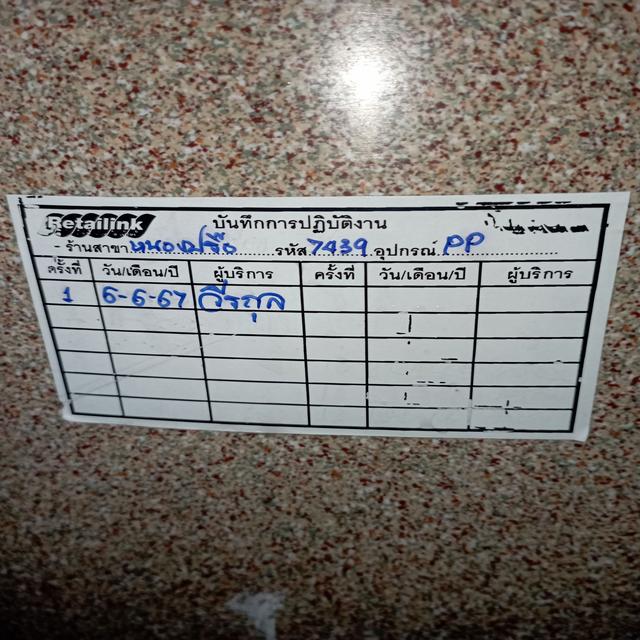 Retailink
บันทึกการปฏิบัติงาน
- ร้านสาขา หนองปรือ รหัส 7439 อุปกรณ์ PP
ครั้งที่ วัน/เดือน/ปี ผู้บริการ ครั้งที่ วัน/เดือน/ปี ผู้บริการ
1 6-6-67 วีรกุล